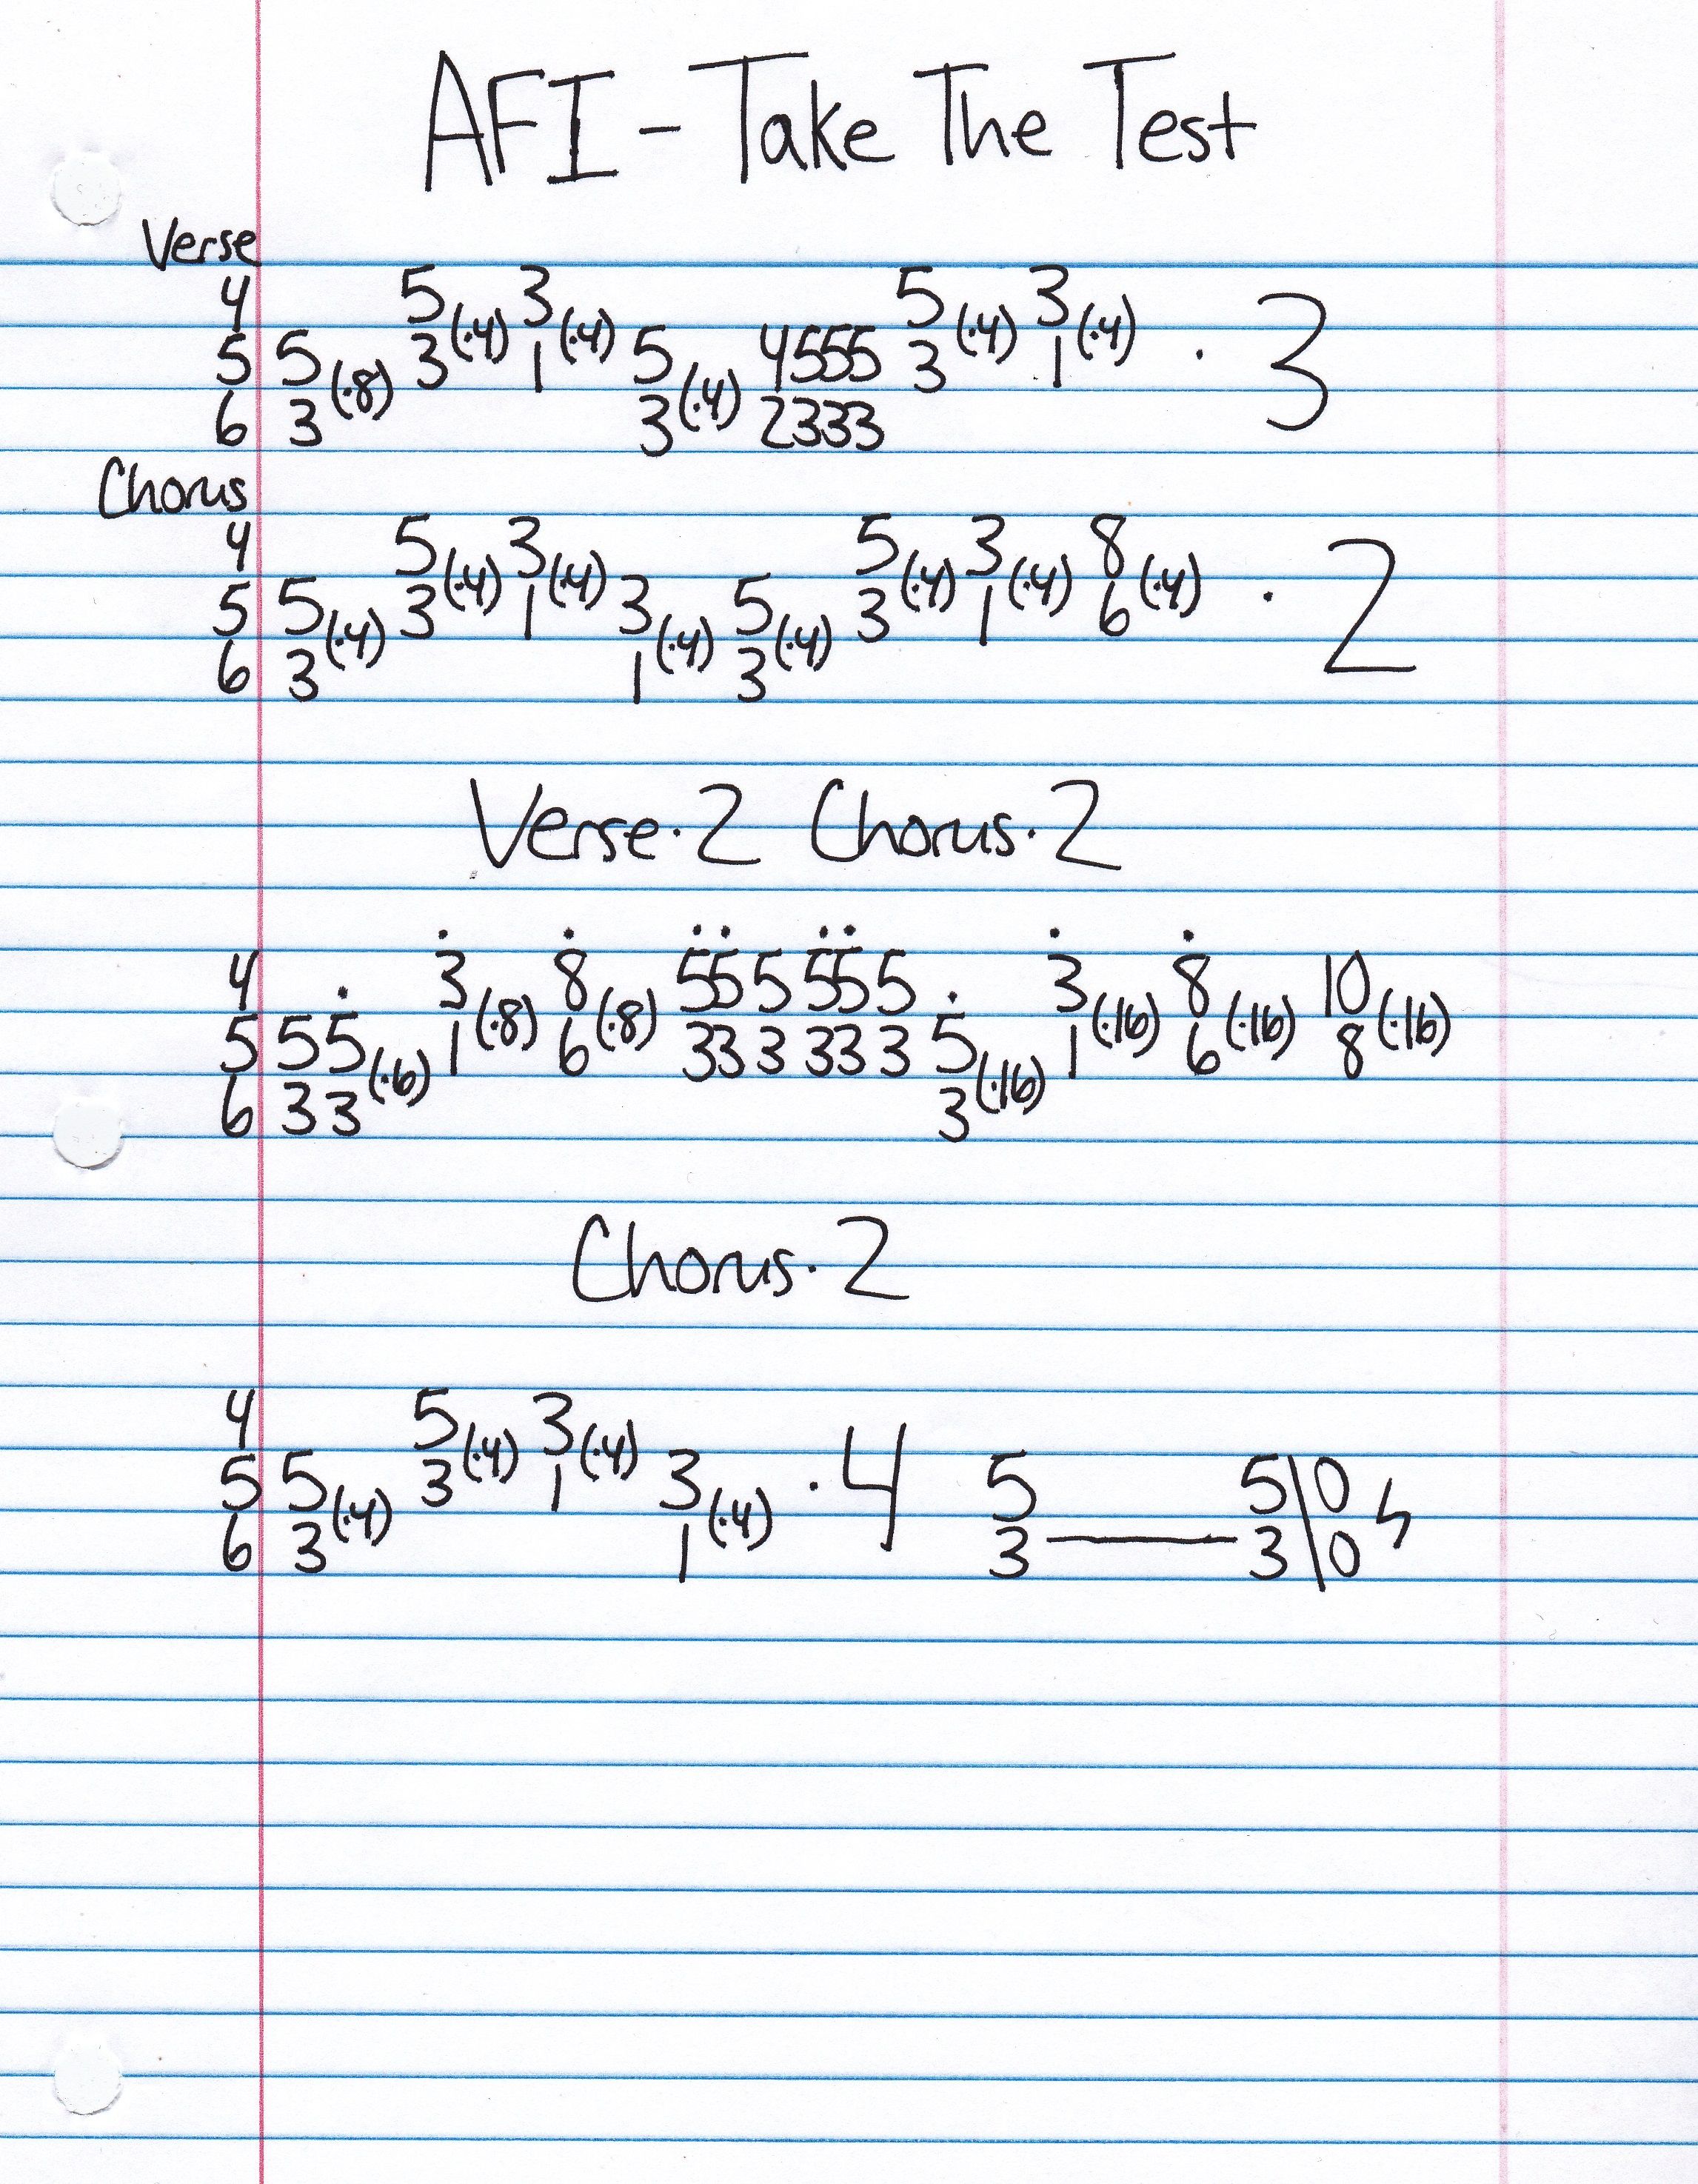 AFI - Take The Test
Verse
4 5(·4) 3(·4) 5(·4) 3(·4)
5 5(·8) 3 1 5(·4) 4555 3 1 · 3
6 3 3 2333
Chorus
4 5(·4) 3(·4) 5(·4) 3(·4) 8(·4)
5 5(·4) 3 1 3(·4) 5(·4) 3 1 6 · 2
6 3 1 3
Verse·2 Chorus·2
4 3(·8) 8(·8) 55 5 55 5 3(·16) 8(·16) 10(·16)
5 55(·6) 1 6 33 3 33 3 5(·16) 1 6 8
6 33 3
Chorus·2
4 5(·4) 3(·4)
5 5(·4) 3 1 3(·4) ·4 5 5\0
6 3 1 3——3\0